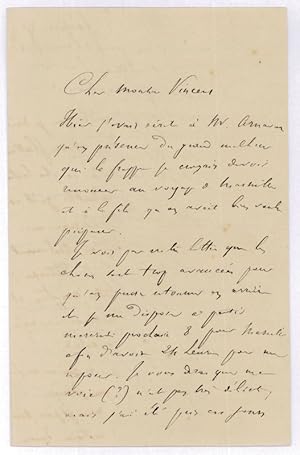 Cher Monsieur Vincens
Hier j'avais écrit à Mr
qu'en présence du grand malheur
qui le frappe je croyais devoir
renoncer au voyage de Marseille
et à la fête qu'on avait bien voulu
préparer.
Je vois par votre lettre que les
choses sont trop avancées pour
qu'on puisse retourner en arrière
et je me dispose à partir
mercredi prochain 8 pour Marseille
afin d'avoir 24 heures pour me
reposer. Je vous dirai que ma
voix (?) n'est pas très
mais j'ai été pris ces jours